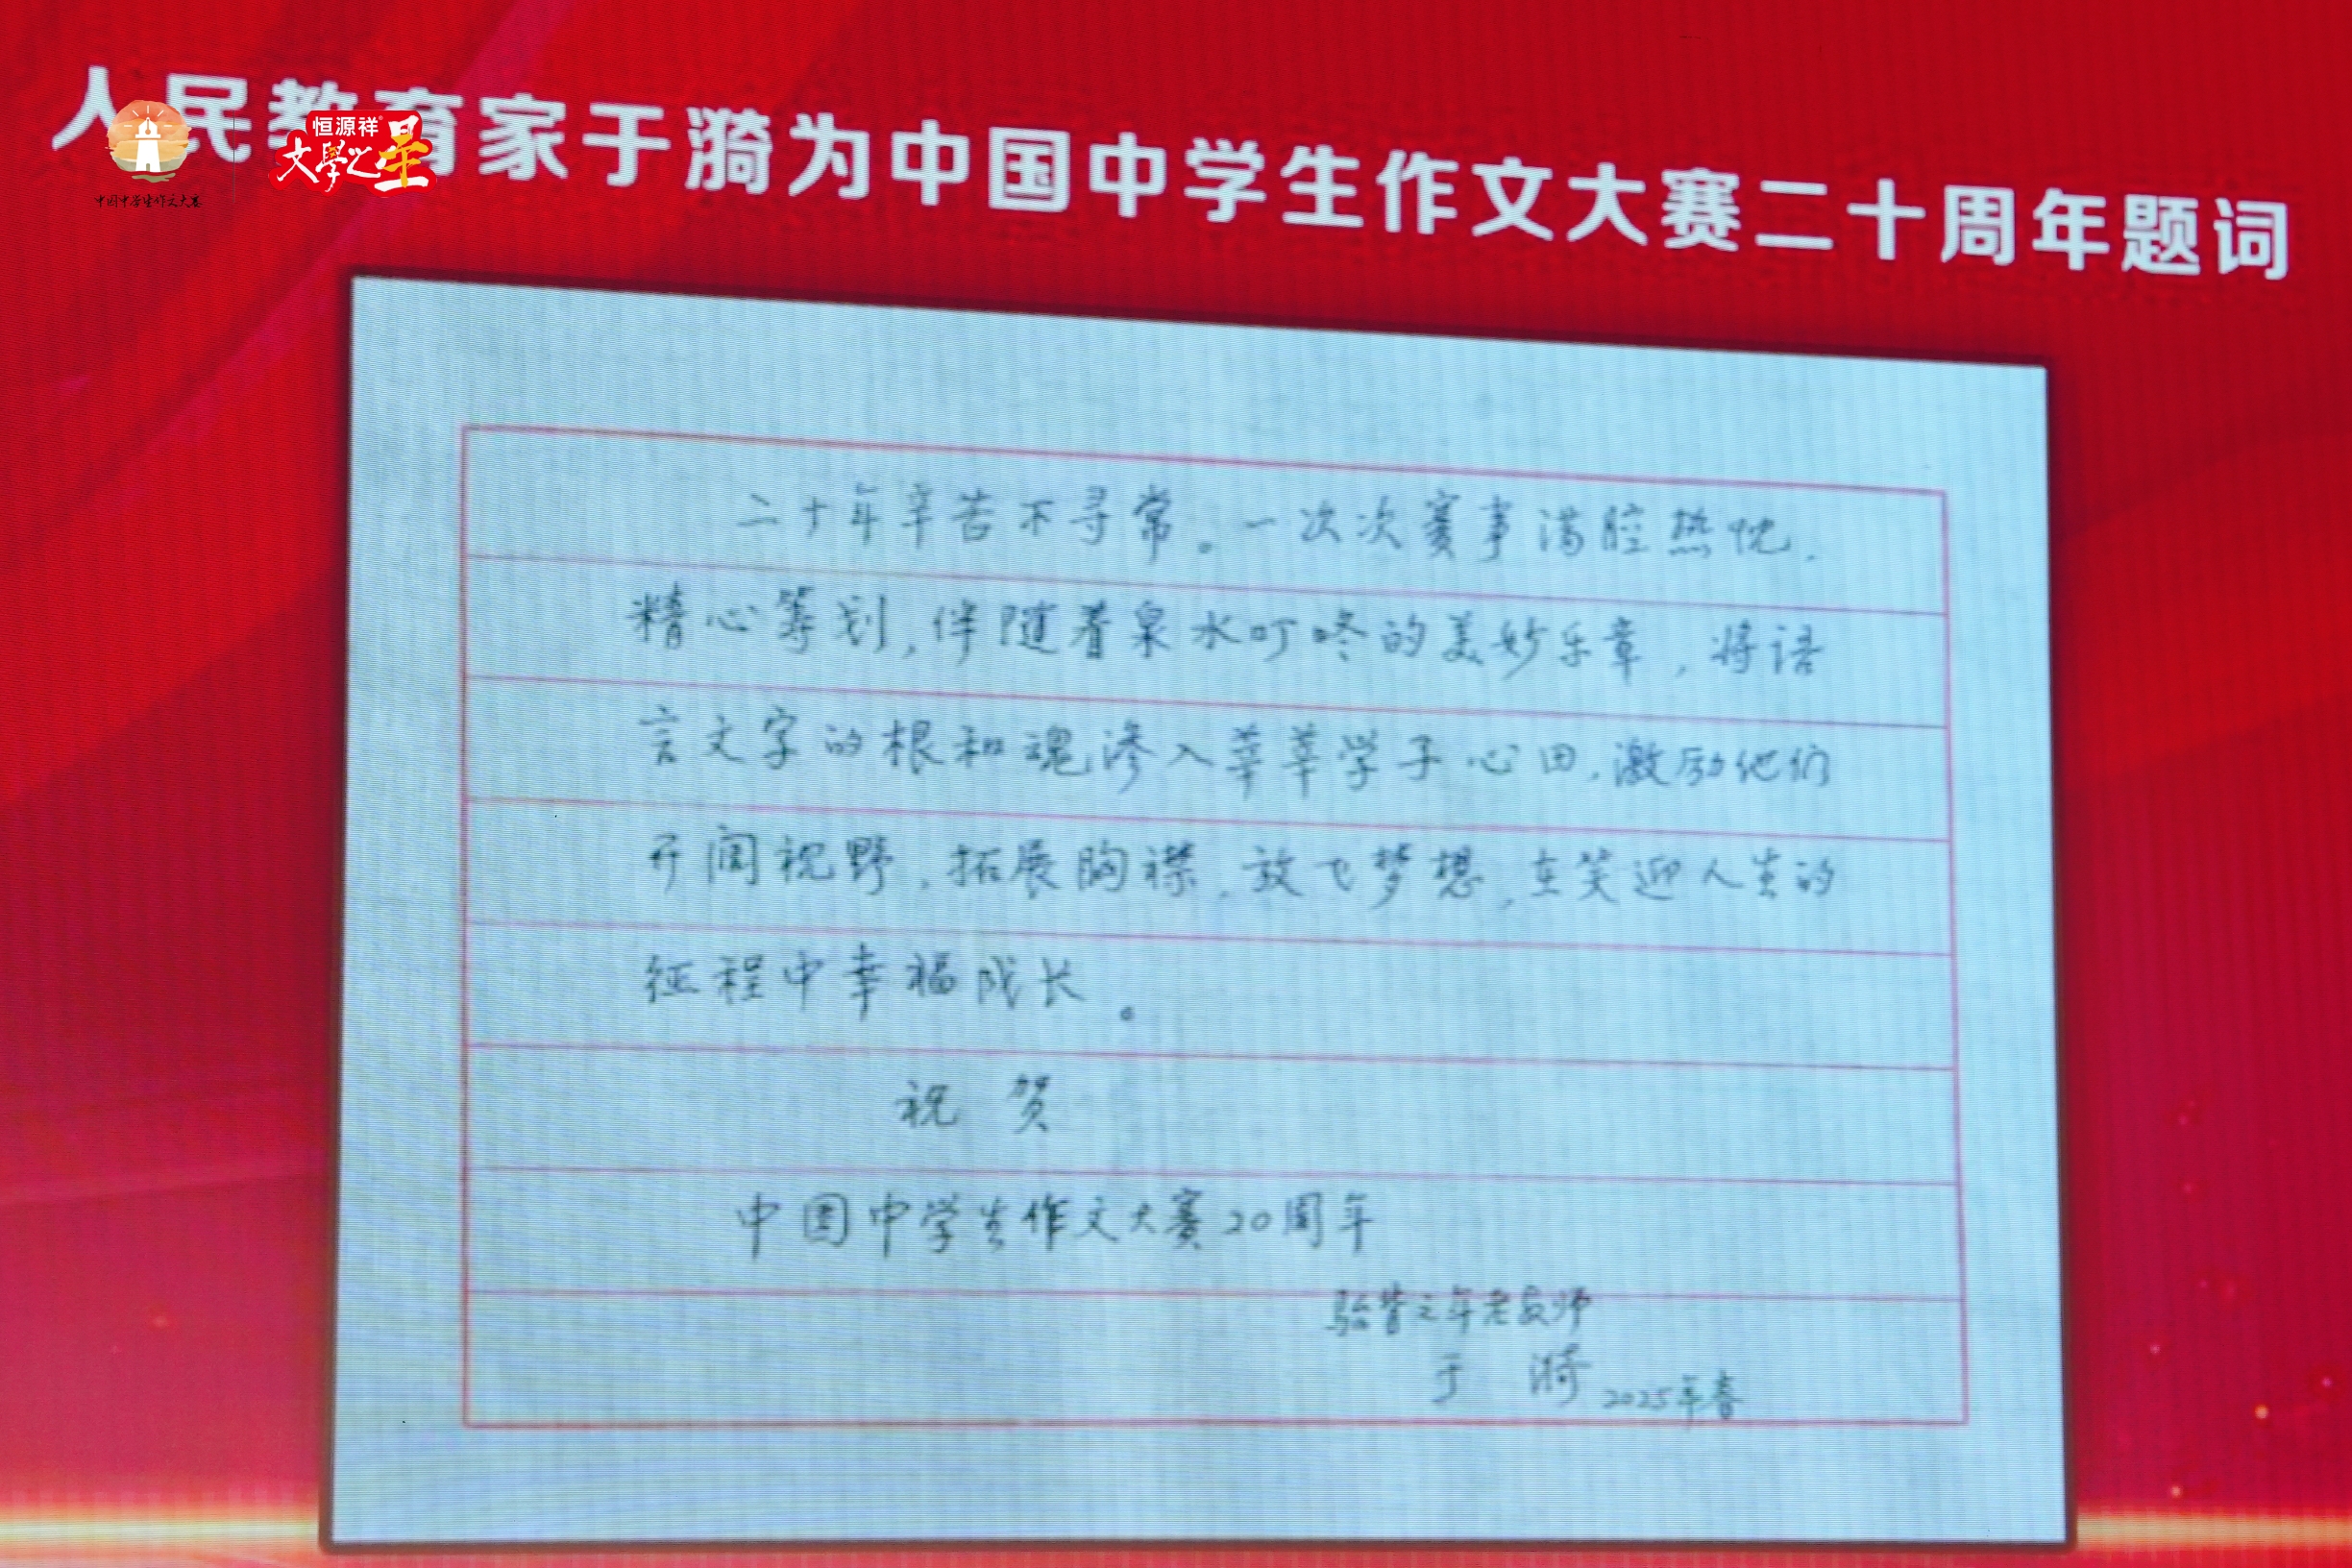 人民教育家于漪为中国中学生作文大赛二十周年题词
中国中学生作文大赛
恒源祥®
文學之星
二十年辛苦不寻常。一次次赛事满腔热忱,
精心筹划,伴随着泉水叮咚的美妙乐章,将语
言文字的根和魂渗入莘莘学子心田,激励他们
开阔视野,拓展胸襟,放飞梦想,在笑迎人生的
征程中幸福成长。
祝 贺
中国中学生作文大赛20周年
鲐背之年老教师
于 漪 2025年春